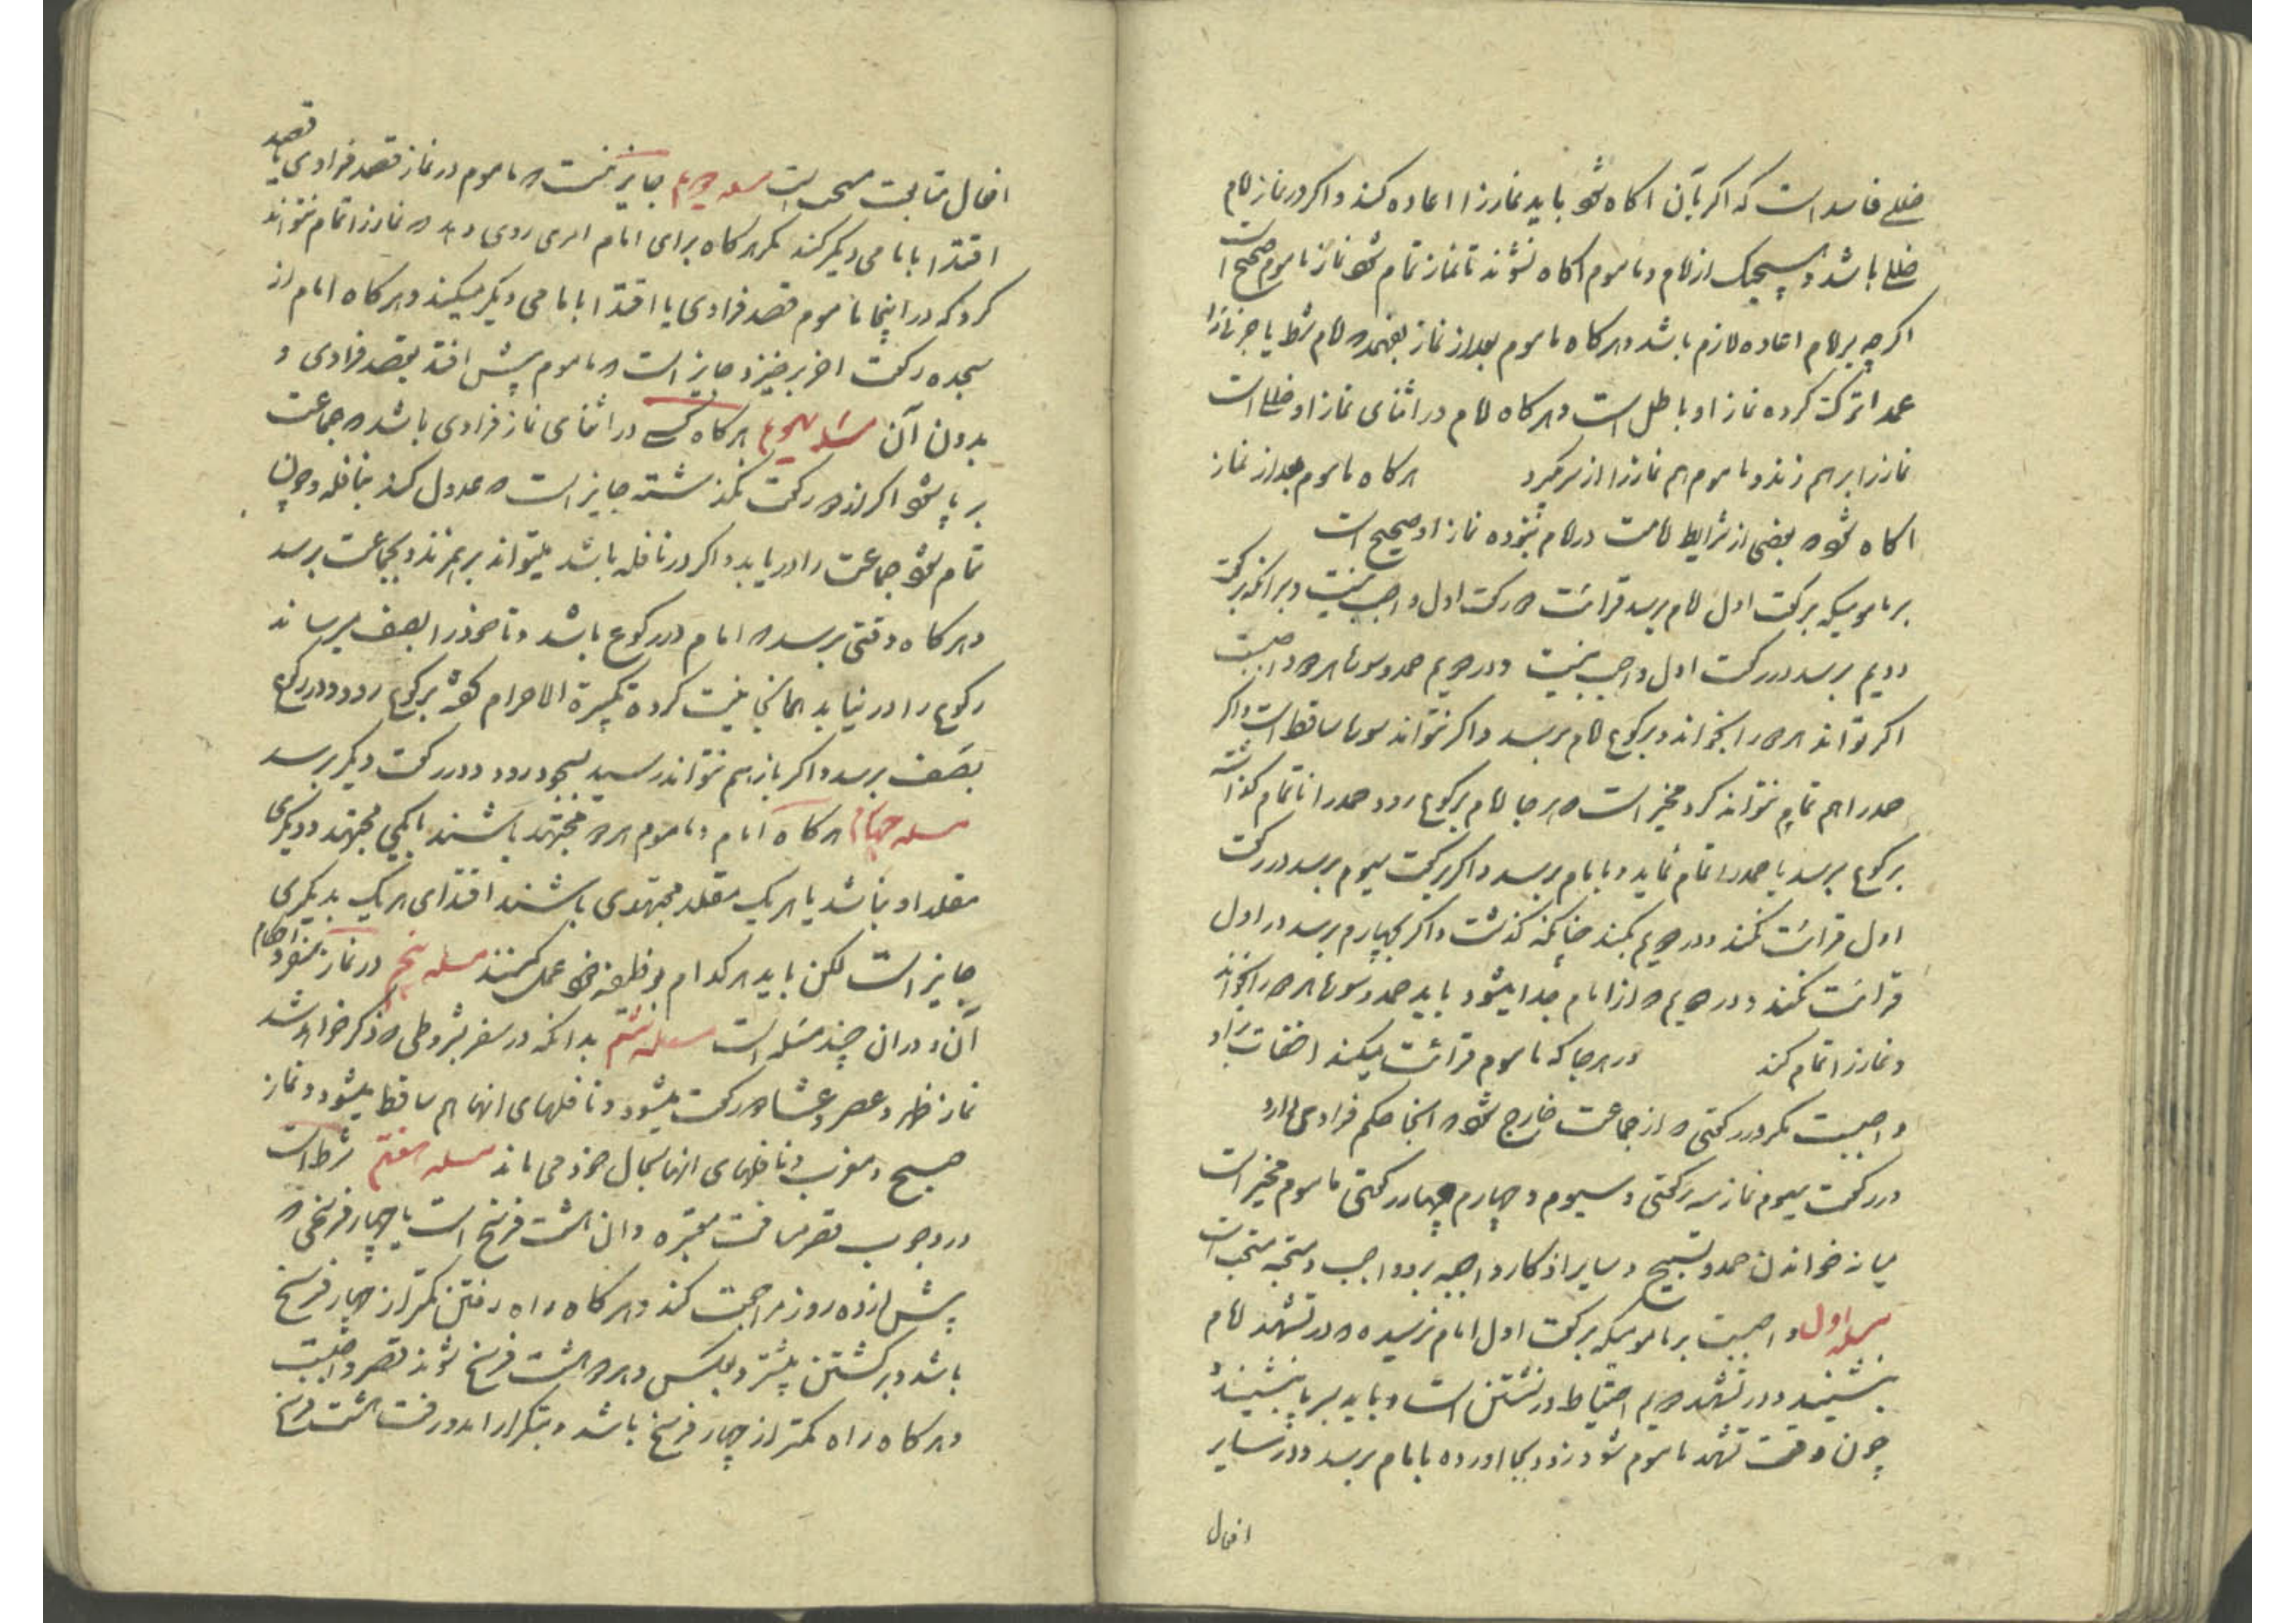 خللی فاسد است که اگر بآن اکاه شود باید نمازرا اعاده کند و اکر در نماز امام
خللی باشد و هیچیک از امام و ماموم اکاه نشوند تا نماز تمام شود نماز ماموم صحیح است
اکرچه بر امام اعاده لازم باشد و هرکاه ماموم بعد از نماز بفهمد که امام شرط یا جزء نمازرا
عمدا ترک کرده نماز او باطل است و هرکاه امام در اثنای نماز او خللی است
نمازرا برهم زند و ماموم هم نمازرا از سر گیرد هرکاه ماموم بعد از نماز
اکاه شود که بعضی از شرایط امامت در امام نبوده نماز او صحیح است
بر مامومیکه برکعت اول امام برسد قرائت دو رکعت اول واجب نیست و بر آنکه برکعت
دویم برسد در رکعت اول واجب نیست و در دویم حمد و سوره هر دو واجبست
اکر تواند هر دو را بخواند و برکوع امام برسد و اکر نتواند سوره ساقط است و اکر
حمد را هم تمام نتواند کرد مخیر است که هر جا امام برکوع رود حمد را ناتمام گذاشته
برکوع برسد یا حمد را تمام نماید و بامام برسد و اکر برکعت سیوم برسد در رکعت
اول قرائت نکند و در دویم بکند چنانکه گذشت و اکر بچهارم برسد در اول
قرائت نکند و در دویم که از امام جدا میشود باید حمد و سوره هر دو را بخواند
و نمازرا تمام کند در هر جا که ماموم قرائت میکند اخفات بر او
واجبست مکر در رکعتی که از جماعت خارج شود که انجا حکم فرادی دارد
در رکعت سیوم نماز سه رکعتی و سیوم و چهارم چهار رکعتی ماموم مخیر است
میانه خواندن حمد و تسبیح و سایر اذکار واجبه بر او واجب و مستحبه مستحب است
مسئله اول واجبست بر مامومیکه برکعت اول امام نرسیده که در تشهد امام
بنشیند و در تشهد دویم احتیاط در نشستن است و باید بر پا بنشیند و
چون وقت تشهد ماموم شود زود بجا اورده بامام برسد و در سایر
افعال
افعال متابعت مستحب است مسئله دویم جایز نیست که ماموم در نماز قصد فرادی یا قصد
اقتدا بامامی دیکر کند مکر هرکاه برای امام امری روی دهد که نمازرا تمام نتواند
کرد که در اینجا ماموم قصد فرادی یا اقتدا بامامی دیکر میکند و هرکاه امام از
سجده رکعت اخر برخیزد جایز است که ماموم پیش افتد بقصد فرادی و
بدون آن مسئله سیوم هرکاه کسی در اثنای نماز فرادی باشد که جماعت
بر پا شود اکر از دو رکعت نگذشته جایز است که عدول کند بنافله و چون
تمام شود جماعت را دریابد و اکر در نافله باشد میتواند برهم زند و بجماعت برسد
و هرکاه وقتی برسد که امام در رکوع باشد و تا خود را بصف میرساند
رکوع را در نیابد همانجا نیت کرده تکبیرة الاحرام گفته برکوع رود و در رکوع
بصف برسد و اکر باز هم نتواند رسید بسجود رود و در رکعت دیکر برسد
مسئله چهارم هرکاه امام و ماموم هر دو مجتهد باشند یا یکی مجتهد و دیکری
مقلد او نباشد یا هر یک مقلد مجتهدی باشند اقتدای هر یک بدیکری
جایز است لکن باید هر کدام بوظیفه خود عمل کنند مسئله پنجم در نماز سفر و احکام
آن و در ان چند مسئله است مسئله ششم بدانکه در سفر بشروطی که ذکر خواهد شد
نماز ظهر و عصر و عشا دو رکعت میشود و نافلهای انها هم ساقط میشود و نماز
صبح و مغرب و نافلهای انها بحال خود می ماند مسئله هفتم شرط است
در وجوب قصر مسافت معتبره و ان هشت فرسخ است یا چهار فرسخی که
پیش از ده روز مراجعت کند و هرکاه راه رفتن کمتر از چهار فرسخ
باشد و برکشتن بیشتر و بعکس و هر دو هشت فرسخ شوند قصر واجبست
و هرکاه راه کمتر از چهار فرسخ باشد و بتکرار امد و رفت هشت فرسخ